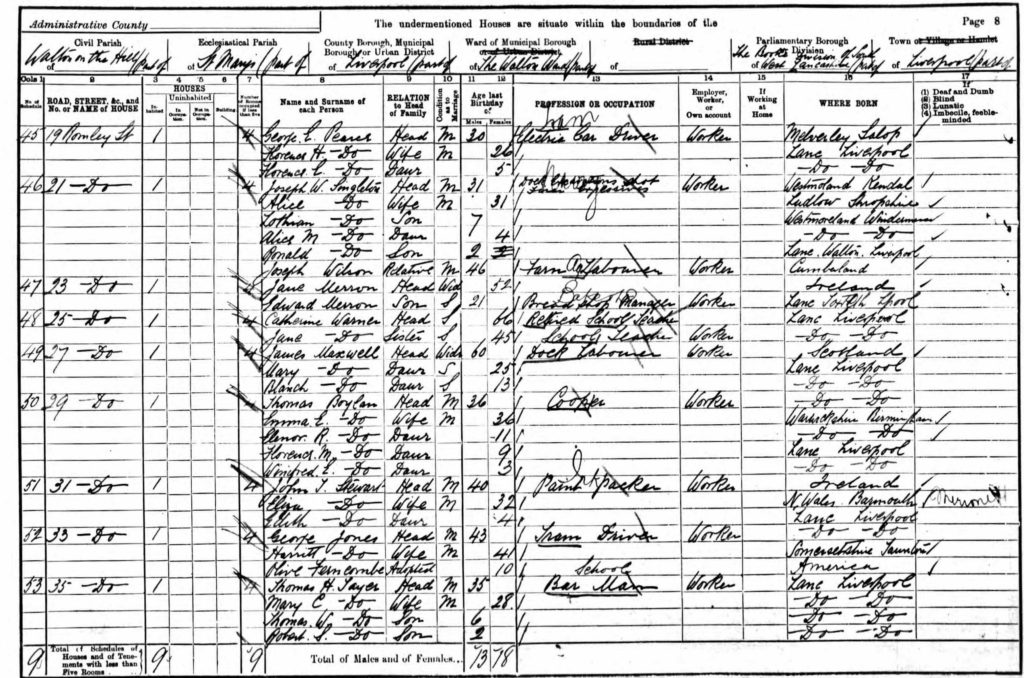 Administrative County
The undermentioned Houses are situate within the boundaries of the
Page 8
Civil Parish
Ecclesiastical Parish
County Borough, Municipal Borough or Urban District
Ward of Municipal Borough or Urban District
Rural District
Parliamentary Borough or Division
Town or Village or Hamlet
of Walton on the Hill part of
of St Marys part of
of Liverpool part of
of The Walton Ward part of
of
of West Lancashire part of
of Liverpool part of
Cols 1 2 3 4 5 6 7 8 9 10 11 12 13 14 15 16 17
No. of Schedule
ROAD, STREET, &c., and No. or NAME of HOUSE
HOUSES
Inhabited
Uninhabited
In Occupation
Not in Occupation
Building
Name and Surname of each Person
RELATION to Head of Family
Condition as to Marriage
Age last Birthday of
Males Females
PROFESSION OR OCCUPATION
Employer, Worker, or Own account
If Working at Home
WHERE BORN
If (1) Deaf and Dumb (2) Blind (3) Lunatic (4) Imbecile, feeble-minded
45 19 Romley St 1 4 George E. Pearce Head M 30 Electric Car Driver Tram Worker Melverley Salop
Florence H. -Do Wife M 26 Lanc Liverpool
Florence E. -Do Daur 5 -Do -Do
46 21 -Do 1 4 Joseph W. Singleton Head M 31 Worker Westmoland Kendal
Alice -Do Wife M 31 Ludlow Shropshire
Lothian -Do Son 7 Westmoreland Windermere
Alice M -Do Daur 4 -Do -Do
Ronald -Do Son 2 Lanc Walton Liverpool
Joseph Wilson Relative M 46 Farm Labourer Worker Cumberland
47 23 -Do 1 Jane Merron Head Wid 52 Ireland
Edward Merron Son S 21 Bread Shop Manager Worker Lanc Lpool
48 25 -Do 1 4 Catherine Warner Head S 66 Retired School Teacher Lanc Liverpool
Jane -Do Sister S 45 School Teacher Worker -Do -Do
49 27 -Do 1 4 James Maxwell Head Widr 60 Dock Labourer Worker Scotland
Mary -Do Daur S 25 Lanc Liverpool
Blanch -Do Daur S 13 -Do -Do
50 29 -Do 1 4 Thomas Boylan Head M 36 Cooper Worker -Do -Do
Emma E. -Do Wife M 36 Warwickshire Birmingham
Elenor R. -Do Daur 11 -Do -Do
Florence M. -Do Daur 9 Lanc Liverpool
Winifred E. -Do Daur 3 -Do -Do
51 31 -Do 1 4 John T. Stewart Head M 40 Paint packer Worker Ireland
Eliza -Do Wife M 32 N. Wales Barmouth
Edith -Do Daur 4 Lanc Liverpool
52 33 -Do 1 4 George Jones Head M 43 Tram Driver Worker -Do -Do
Harriett -Do Wife M 41 Somersetshire Taunton
Olive Ferncombe Adopted 10 School America
53 35 -Do 1 4 Thomas H. Sayer Head M 35 Bar Man Worker Lanc Liverpool
Mary C -Do Wife M 28 -Do -Do
Thomas W. -Do Son 6 -Do -Do
Robert S. -Do Son 2 -Do -Do
9 Total of Schedules of Houses and of Tenements with less than Five Rooms 9 9 Total of Males and of Females... 13 18